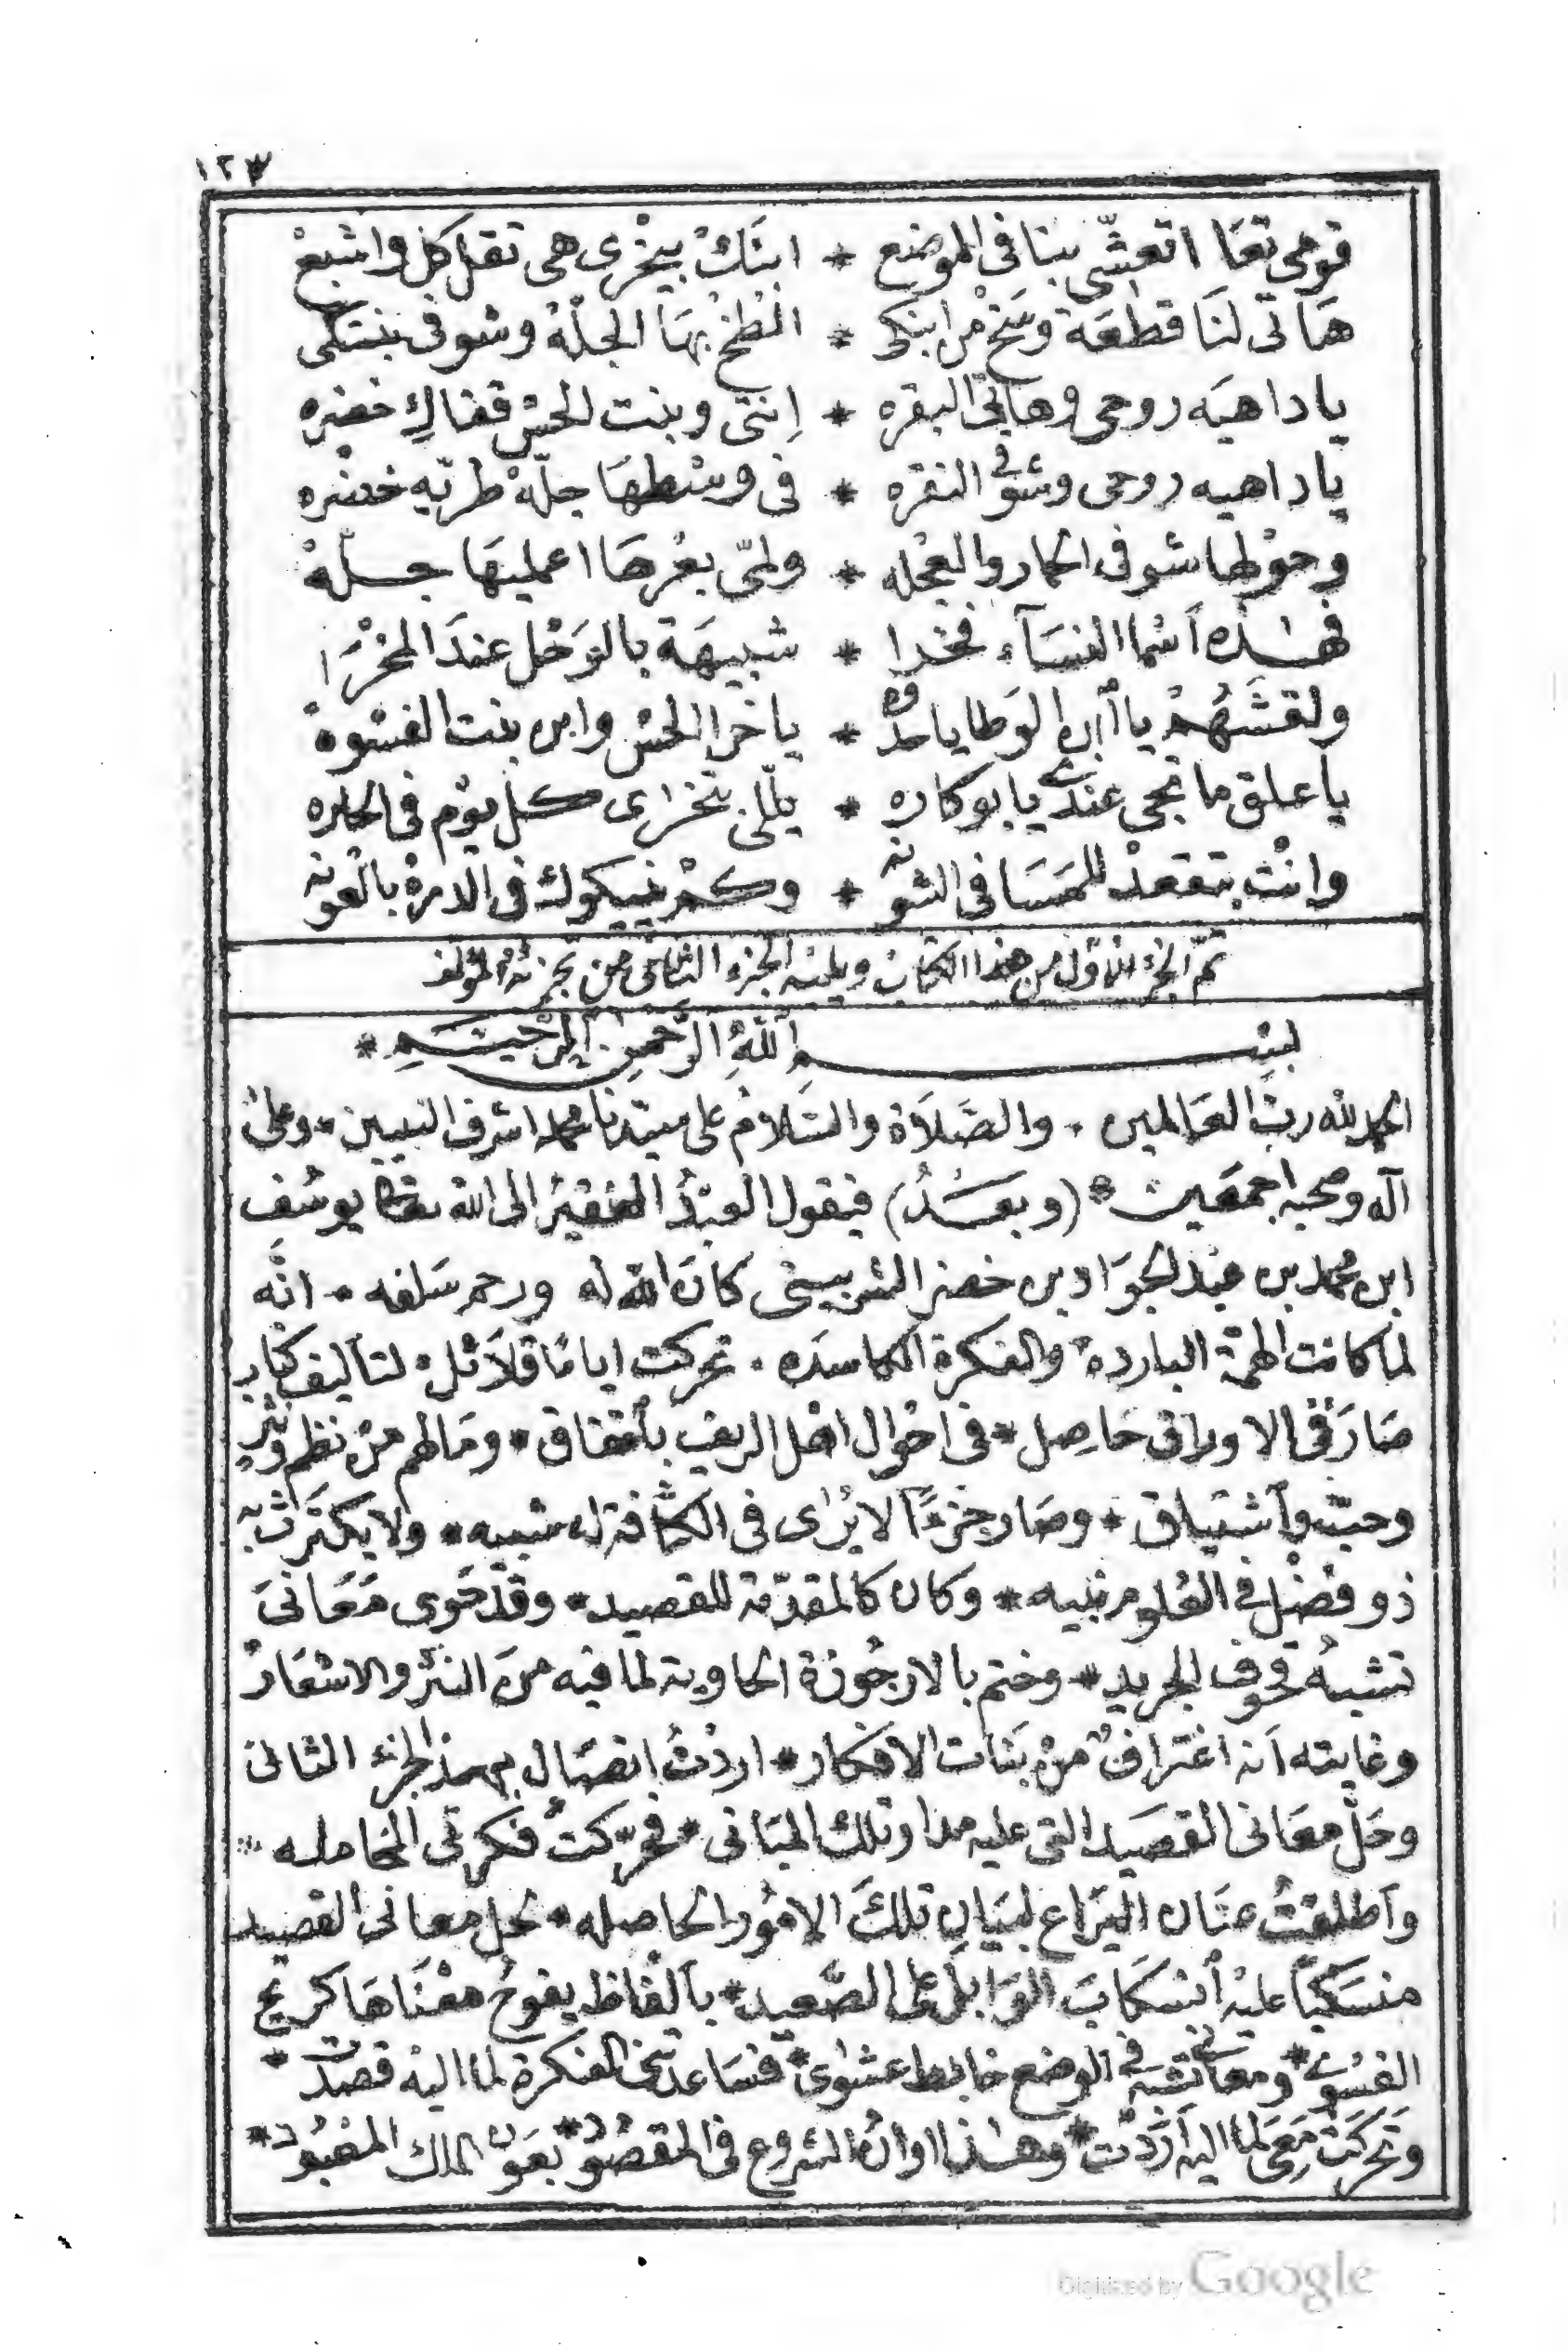 ١٢٣
قومى تعَا اتعشّى بنا فى الموضع * ابنَكْ بيخْرى هى تقل كل واشبع
هَاتى لنَا قطعَة وسَخْ من ابنكى * الْطُخْ بهَا الجلّهْ وشوفى بنتكى
يا داهيَه روحى وهاتى البقره * اِنتى وبنت الحسْ قفاكِ خضره
يا داهيه روحى وشوفى النقره * فى وسْطهَا جلّهْ طريّه خضْره
وحوْلها شوفى الحمار والعِجْله * ولمّى بعْرهَا اعمليهَا جلّهْ
فهذه اَسْما النسَآء فخدا * شبيهَة بالوَحْل عندَ المخْرَا
ولقشَهُمْ يا ابن الوَطا يا مدوّد * يا خَرا الحسْ وابن بنت الفسْوهْ
يا علق ما تجى عندى يا بو كاره * يلّى بتخرَاى كل يوْم فى الحاره
وانْت بتقعدْ للمَسَا فى الشونه * وكمْ نييكوك فى الدمسْ بالعونه
تمّ الجزء الاول من هذا الكتاب ويليه الجزء الثانى من تجزئة المؤلف
بسْمِ اللّٰهِ الرَّحْمٰنِ الرَّحِيمِ *
الحمد لله ربّ العَالمين ۰ والصَّلاَة والسَّلامُ على سيّدنا محمد اشرف النبيين * وعلىٰ
آله وصحبه اجمعَين * (وبعَــدُ) فيقول العَبْدُ الفقيرُ الى الله تعَالى يوسُف
ابن محمد بن عبد الجوَاد بن خضر الشربينى كانَ الله له ورحم سَلفه * انّه
لما كانت الهمّة البارده * والفكرة الكاسدَه ۰ تحركت اياماً قلاَئل * لتأليف كتاب
صَارَ فى الاوراق حَاصِل * فى احْوال اهْل الريف باتّفاق * ومَا لهم منْ نظم ونثْر
وحبّ واشتياق * وصَار جزءًا لا يُرٰى فى الكثافة له شبيه * ولا يكترَثُ به
ذو فضْل فى العُلوم نبيه * وكان كالمقدّمة للقصيد * وقدْ حَوى مَعَانىَ
تشبهُ قحُوف الجريد * وختم بالارجُوزة الحاوية لما فيه منَ النثر والاشعَارْ
وغايته اَنه اغترافٌ منْ بَنات الافكار * اردْتُ اتصَال بهذا الجزء الثانى
وحَلّ معَانى القصَيد التى عليه مدار تلك المبَانى * فحرّكتُ فكرتى الخَامله *
واَطلقتُ عنَان اليَراع لبيَان تلكَ الامُور الحاصله * لحل معانى القصيد
منسَكباً عليْه انْسكَابَ الوَابل على الصَّعيد * بالفْاظ يفوحُ معْنَاهَا كريح
الفسْوى * ومعَانى تشبه فى الوضع خابط عشْوى * فسَاعدتنى الفكرة لما اليْه قصدْت *
وتحركَتْ مَعِى لما اليه اَرَدْت * وهذا اوانُ الشروع فى المقصُود * بعَون الملك المعْبُود *
Digitized by Google